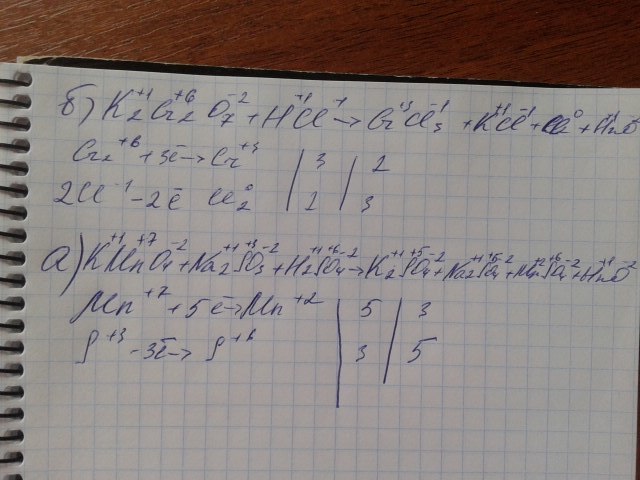 б) K₂⁺¹Cr₂⁺⁶O₇⁻² + H⁺¹Cl⁻¹ → Cr⁺³Cl₃⁻¹ + K⁺¹Cl⁻¹ + Cl₂⁰ + H₂⁺¹O⁻²
Cr₂⁺⁶ + 3ē → Cr⁺³ | 3 | 2
2Cl⁻¹ - 2ē Cl₂⁰ | 2 | 3
а) K⁺¹Mn⁺⁷O₄⁻² + Na₂⁺¹S⁺³O₃⁻² + H₂⁺¹S⁺⁶O₄⁻² → K₂⁺¹S⁺⁵O₄⁻² + Na₂⁺¹S⁺⁶O₄⁻² + Mn⁺²S⁺⁶O₄⁻² + H₂⁺¹O⁻²
Mn⁺⁷ + 5ē → Mn⁺² | 5 | 3
S⁺³ - 3ē → S⁺⁶ | 3 | 5